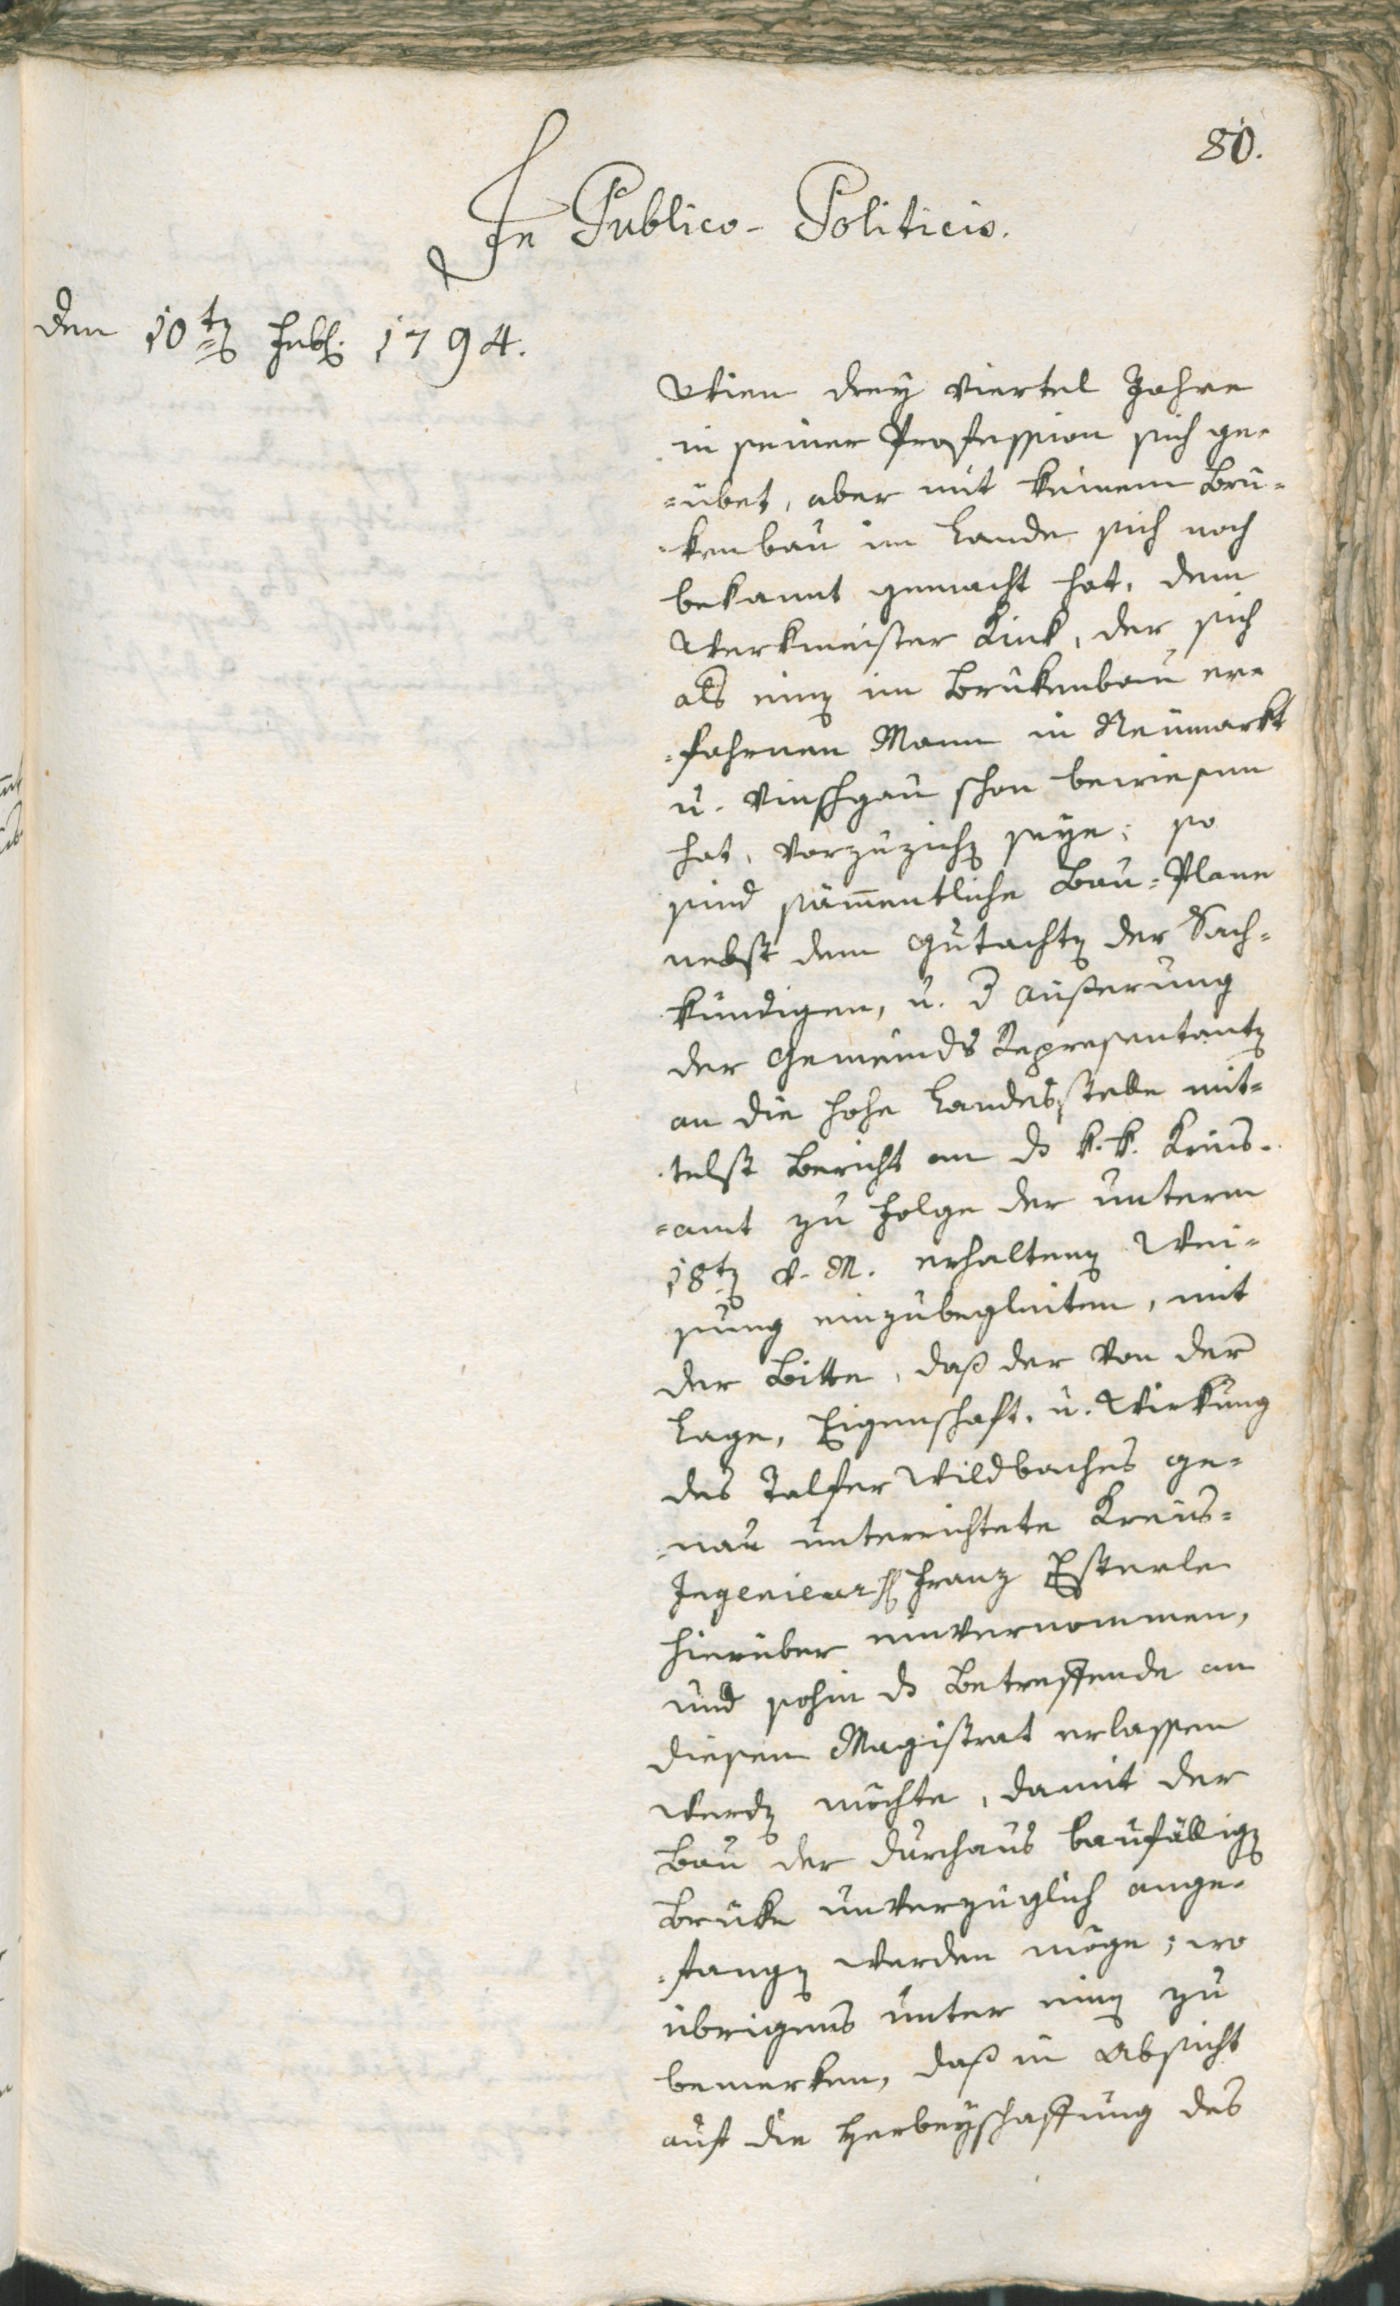 80.
In Publico-Politicis.
den 10ten Febr. 1794.
Wien drey viertel Jahre
in seiner Profession sich ge-
=übet, aber mit keinem Brü-
=kenbau im Lande sich noch
bekannt gemacht hat, dem
Werkmeister Kink, der sich
als einen im Brükenbau er-
=fahrnen Mann in Neumarkt
u. Vinschgau schon bewiesen
hat, vorzuziehen seye; so
sind sämentliche Bau=Plane
nebst dem Gutachten der Sach=
kundigen, u. d Äußerung
der Gemeinds Representanten
an die hohe Landesstelle mit=
telst Bericht an das k.k. Kreis-
=amt zu Folge der unterm
18ten v. M. erhaltenen Wei=
sung einzubegleiten, mit
der Bitte, daß der von der
Lage, Eigenschaft, u. Wirkung
des Talfer Wildbaches ge=
=nau unterrichtete Kreis=
Ingenieur H. Franz Esterle
hierüber einvernommen,
und sohin das Betreffende an
diesen Magistrat erlassen
werden möchte, damit der
Bau der durchaus baufälligen
Brüke unverzüglich ange-
=fangen werden möge; wo
übrigens unter einen zu
bemerken, daß in Absicht
auf die Herbeyschaffung des